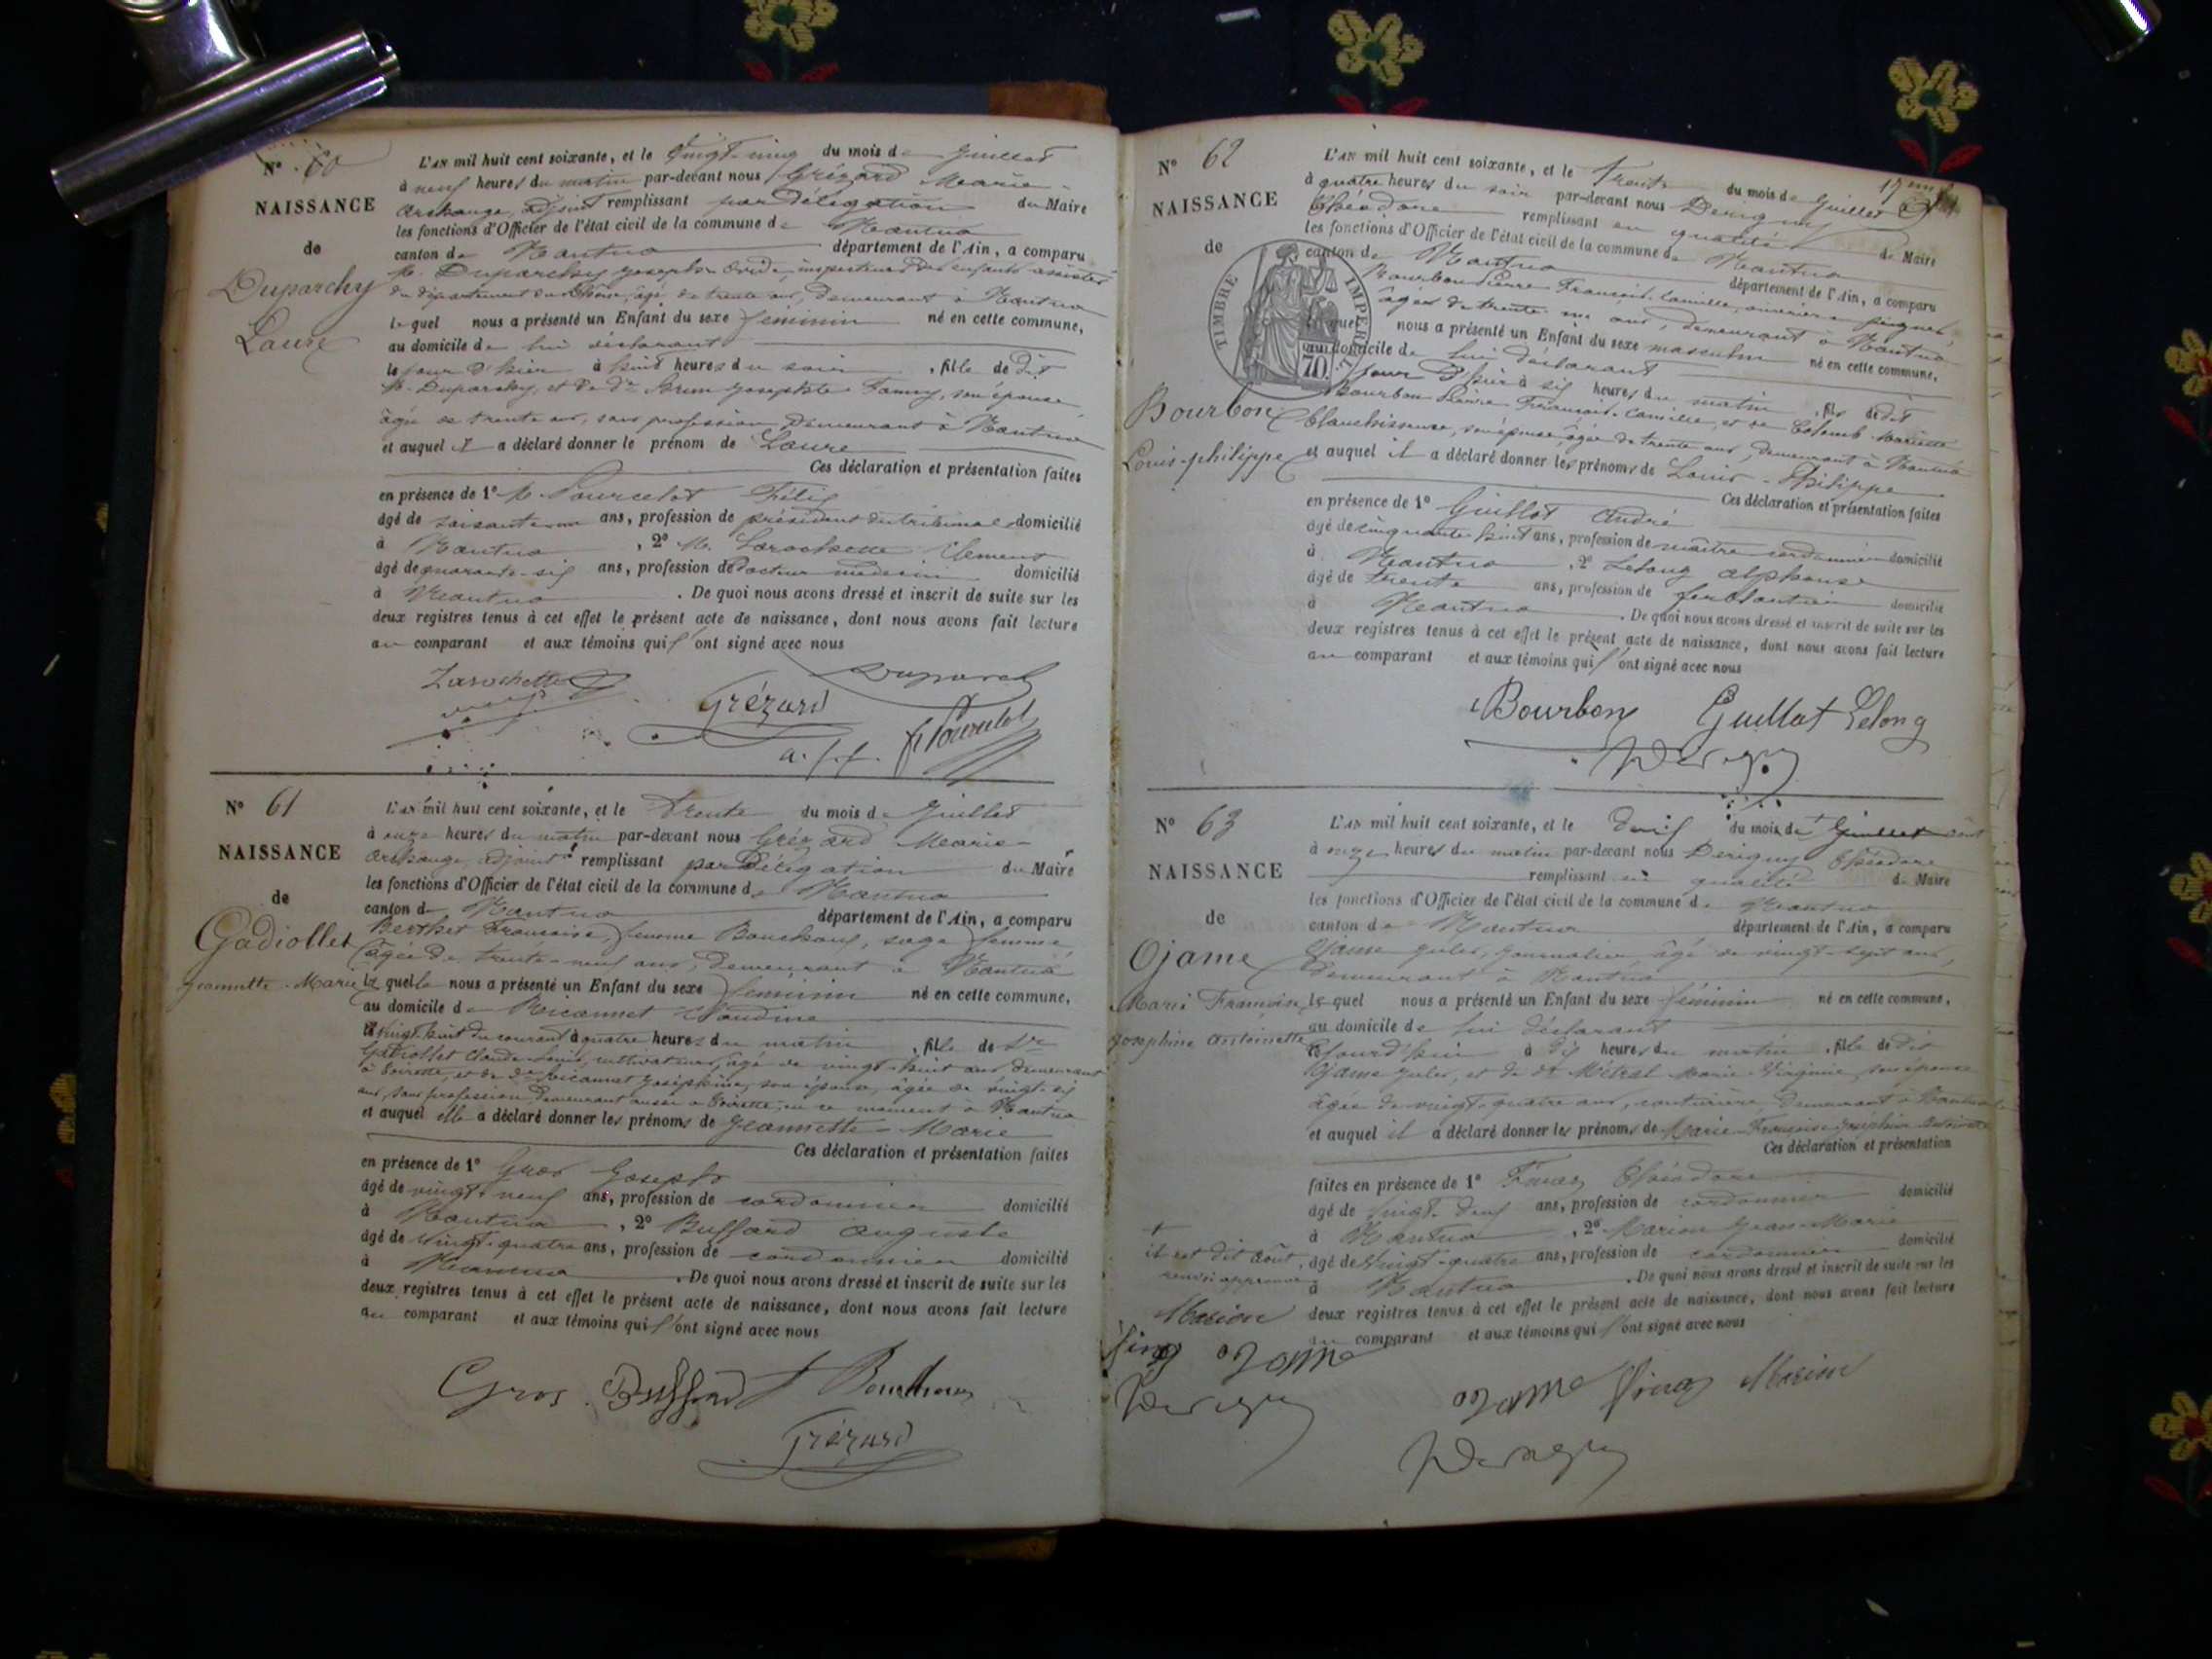 N° 60
NAISSANCE
de
Duparchy
Laure
L'AN mil huit cent soixante, et le vingt-cinq du mois de Juillet
à neuf heures du matin par-devant nous Grézard Marie-
Archange, adjoint remplissant par délégation du Maire
les fonctions d'Officier de l'état civil de la commune de Nantua
canton de Nantua département de l'Ain, a comparu
M. Duparchy Joseph Ovide, inspecteur des enfants assistés
du département âgé de trente ans, demeurant à Nantua
lequel nous a présenté un Enfant du sexe féminin né en cette commune,
au domicile de lui déclarant
le jour d'hier à huit heures du soir, fille de dit
M. Duparchy, et de Fanny, son épouse,
âgée de trente ans, sans profession, demeurant à Nantua
et auquel il a déclaré donner le prénom de Laure
Ces déclaration et présentation faites
en présence de 1° M. Pourcelot Félix
âgé de soixante-un ans, profession de président du tribunal domicilié
à Nantua, 2° M. Larochette Clément
âgé de quarante-six ans, profession de docteur médecin domicilié
à Nantua. De quoi nous avons dressé et inscrit de suite sur les
deux registres tenus à cet effet le présent acte de naissance, dont nous avons fait lecture
au comparant et aux témoins qui l'ont signé avec nous
Larochette Duparchy
Grézard
a. f. f. F. Pourcelot
N° 61
NAISSANCE
de
Gadiollet
Jeannette-Marie
L'AN mil huit cent soixante, et le trente du mois de Juillet
à onze heures du matin par-devant nous Grézard Marie-
Archange, adjoint remplissant par délégation du Maire
les fonctions d'Officier de l'état civil de la commune de Nantua
canton de Nantua département de l'Ain, a comparu
Berthet Françoise, femme Bouchoux, sage femme,
âgée de trente-neuf ans, demeurant à Nantua
laquelle nous a présenté un Enfant du sexe féminin né en cette commune,
au domicile de Claudine
le vingt-huit du courant à quatre heures du matin, fille de Sr
Gadiollet Claude Louis, cultivateur, âgé de vingt-huit ans, demeurant
à Coirette, et de Joséphine, son épouse, âgée de vingt-six
ans, sans profession, demeurant aussi à Coirette, en ce moment à Nantua
et auquel elle a déclaré donner les prénoms de Jeannette-Marie
Ces déclaration et présentation faites
en présence de 1° Gros Joseph
âgé de vingt-neuf ans, profession de cordonnier domicilié
à Nantua, 2° Buffard Auguste
âgé de vingt-quatre ans, profession de cordonnier domicilié
à Nantua. De quoi nous avons dressé et inscrit de suite sur les
deux registres tenus à cet effet le présent acte de naissance, dont nous avons fait lecture
au comparant et aux témoins qui l'ont signé avec nous
Gros Buffard f Bouchoux
Grézard
N° 62
NAISSANCE
de
Bourbon
Louis-philippe
TIMBRE IMPERIAL
70.
L'AN mil huit cent soixante, et le trente du mois de Juillet
à quatre heures du soir par-devant nous Derigny
Théodore remplissant en qualité de Maire
les fonctions d'Officier de l'état civil de la commune de Nantua
canton de Nantua département de l'Ain, a comparu
Bourbon Pierre François Camille, ouvrier en peignes,
âgé de trente-un ans, demeurant à Nantua
lequel nous a présenté un Enfant du sexe masculin né en cette commune,
au domicile de lui déclarant
le jour d'hier à six heures du matin, fils de dit
Bourbon Pierre François Camille, et de Colomb Mariette
blanchisseuse, son épouse, âgée de trente ans, demeurant à Nantua
et auquel il a déclaré donner les prénoms de Louis-Philippe
Ces déclaration et présentation faites
en présence de 1° Guillot André
âgé de cinquante-huit ans, profession de maître cordonnier domicilié
à Nantua, 2° Lelong Alphonse
âgé de trente ans, profession de ferblantier domicilié
à Nantua. De quoi nous avons dressé et inscrit de suite sur les
deux registres tenus à cet effet le présent acte de naissance, dont nous avons fait lecture
au comparant et aux témoins qui l'ont signé avec nous
Bourbon Guillot Lelong
Derigny
N° 63
NAISSANCE
de
Ojame
Marie Françoise
Joséphine Antoinette
L'AN mil huit cent soixante, et le deux du mois de + Juillet août
à onze heures du matin par-devant nous Derigny Théodore
remplissant en qualité de Maire
les fonctions d'Officier de l'état civil de la commune de Nantua
canton de Nantua département de l'Ain, a comparu
Ojame Jules, journalier, âgé de vingt-sept ans,
demeurant à Nantua
lequel nous a présenté un Enfant du sexe féminin né en cette commune,
au domicile de lui déclarant
à dix heures du matin, fille de dit
Ojame Jules, et de de Métral Marie Virginie, son épouse
âgée de vingt-quatre ans, couturière, demeurant à Nantua
et auquel il a déclaré donner les prénoms de Marie Françoise Joséphine Antoinette
Ces déclaration et présentation
faites en présence de 1° Théodore
âgé de vingt-deux ans, profession de cordonnier domicilié
à Nantua, 2° Marion Jean-Marie
âgé de vingt-quatre ans, profession de cordonnier domicilié
à Nantua. De quoi nous avons dressé et inscrit de suite sur les
deux registres tenus à cet effet le présent acte de naissance, dont nous avons fait lecture
au comparant et aux témoins qui l'ont signé avec nous
+
il est dit août,
renvoi approuvé
Marion
ojame
Derigny
ojame Marion
Derigny